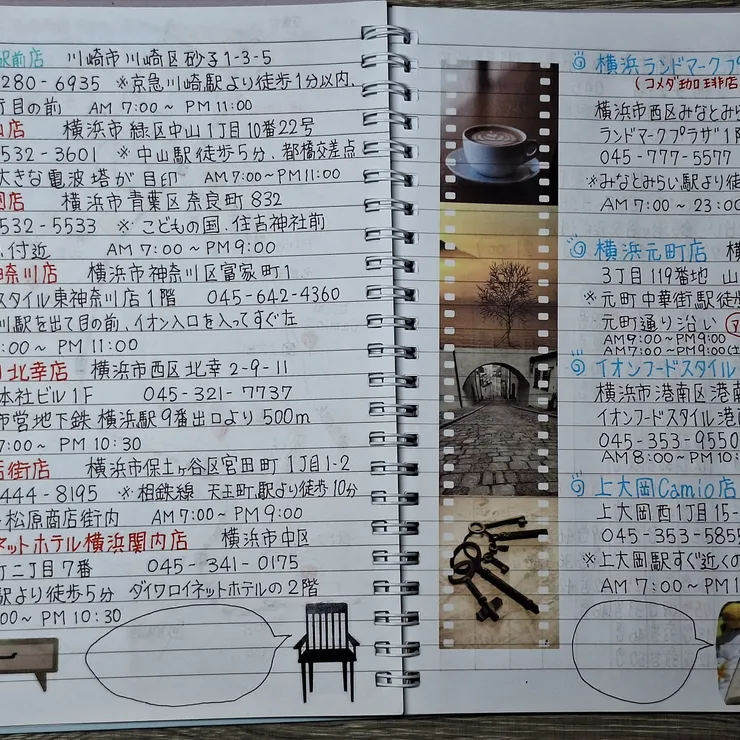 駅前店 川崎市川崎区砂子1-3-5
280-6935 ※京急川崎駅より徒歩1分以内、
丁目の前 AM 7:00～PM 11:00
店 横浜市緑区中山1丁目10番22号
532-3601 ※中山駅徒歩5分、都橋交差点
大きな電波塔が目印 AM7:00～PM11:00
店 横浜市青葉区奈良町832
532-5533 ※こどもの国、住吉神社前
付近 AM 7:00～PM 9:00
神奈川店 横浜市神奈川区富家町1
スタイル東神奈川店1階 045-642-4360
川駅を出て目の前、イオン入口を入ってすぐ左
:00～PM 11:00
北幸店 横浜市西区北幸2-9-11
本社ビル1F 045-321-7737
市営地下鉄 横浜駅9番出口より500m
7:00～PM 10:30
店街店 横浜市保土ヶ谷区宮田町1丁目1-2
444-8195 ※相鉄線 天王町駅より徒歩10分
松原商店街内 AM 7:00～PM 9:00
ネットホテル横浜関内店 横浜市中区
町二丁目7番 045-341-0175
駅より徒歩5分 ダイワロイネットホテルの2階
:00～PM 10:30
横浜ランドマークプラ
(コメダ珈琲店
横浜市西区みなとみら
ランドマークプラザ1
045-777-5577
※みなとみらい駅より徒
AM 7:00～23:00
横浜元町店 横
3丁目119番地 山
※元町中華街駅徒歩
元町通り沿い
AM9:00～PM9:00
AM7:00～PM9:00(土
イオンフードスタイル
横浜市港南区港南
イオンフードスタイル港南
045-353-9550
AM 8:00～PM 10:
上大岡Camio店
上大岡西1丁目15-
045-353-5855
※上大岡駅すぐ近くの
AM 7:00～PM 1